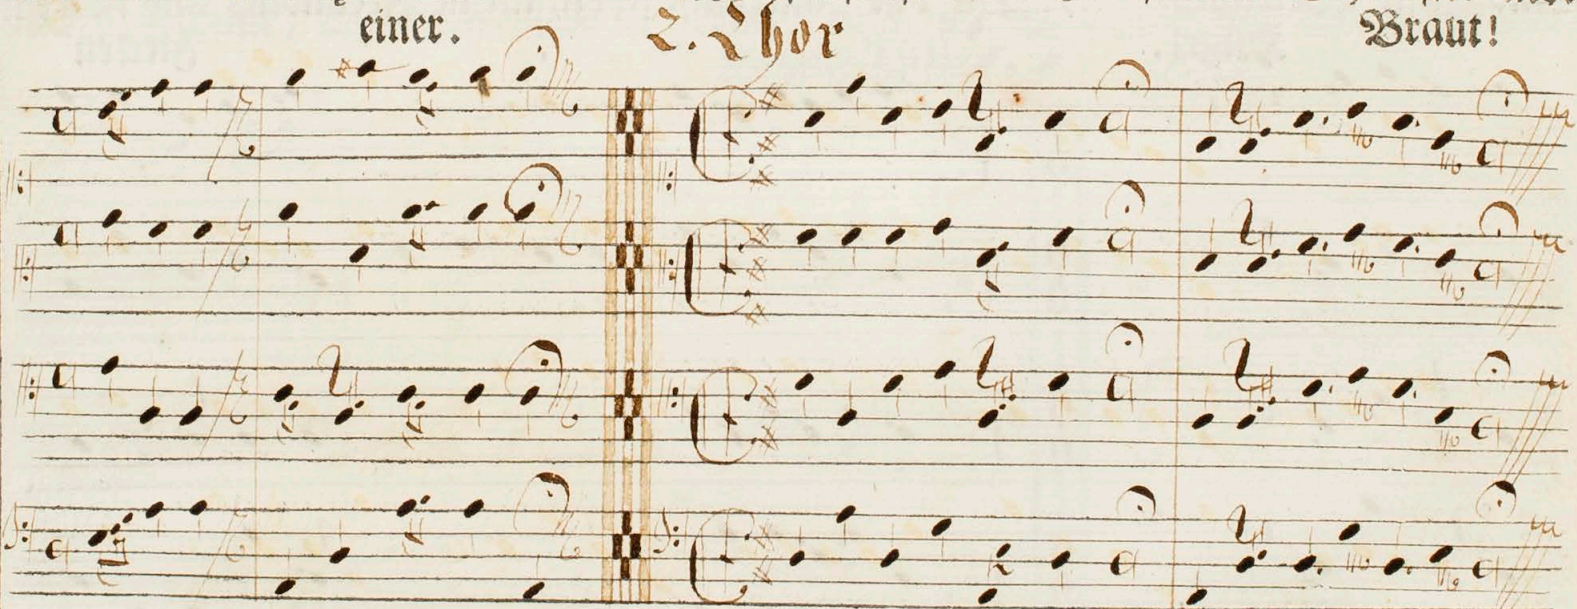 einer. 2. Chor Braut!